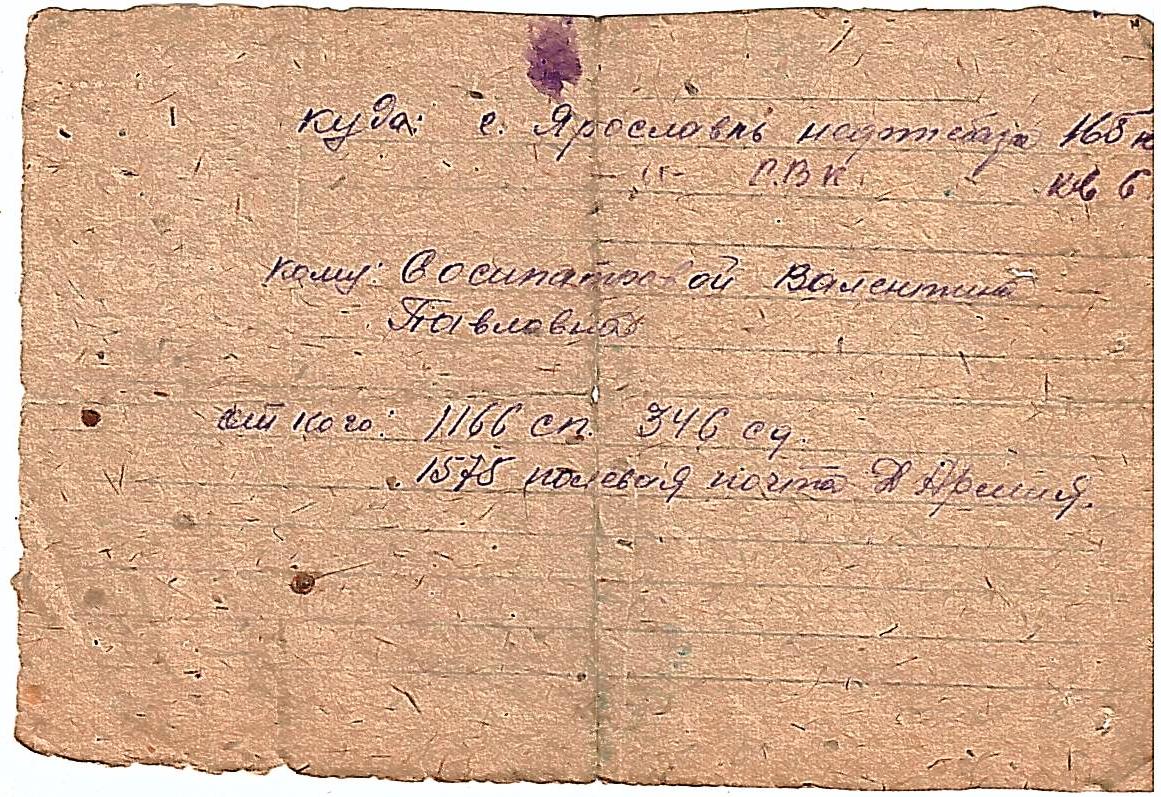 куда: г. Ярославль нефтебаза 165 к
— " — С.В.К. кв 6
кому: Сосипатровой Валентине
Павловне
от кого: 1166 сп. 346 сд.
1575 полевая почта Д Армия.